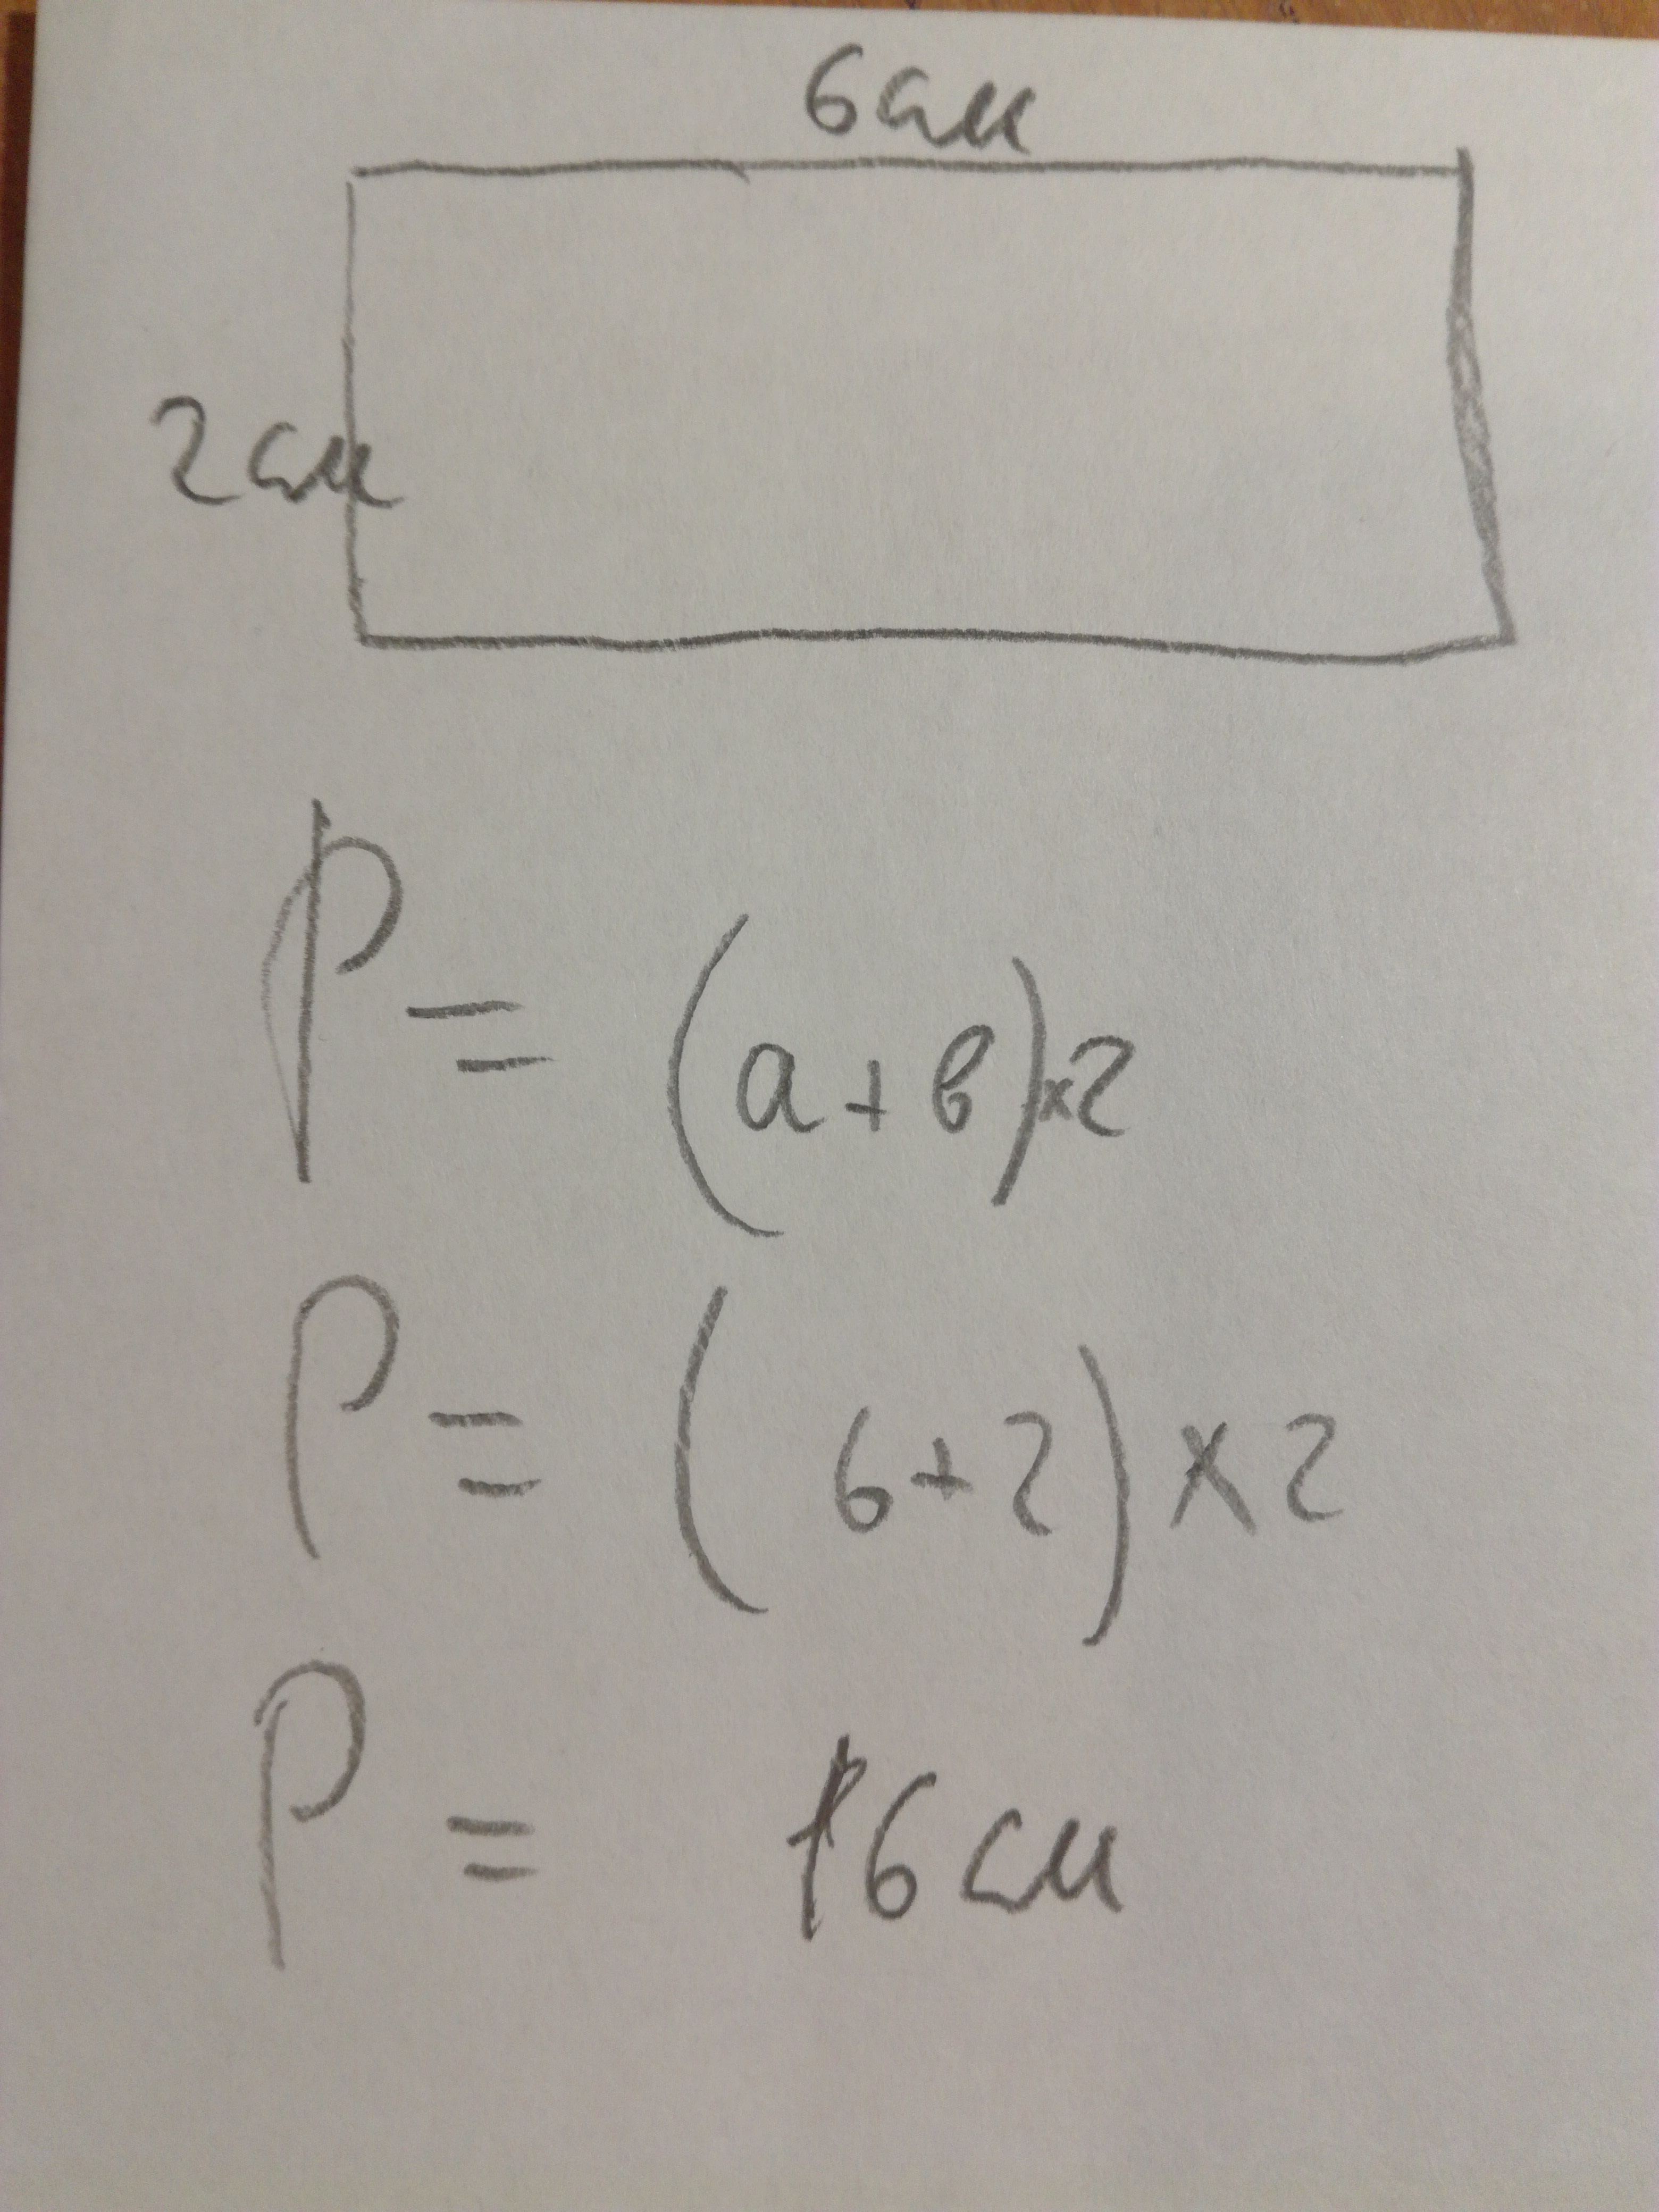 6см
2см
P = (а + в)×2
P = (6+2)×2
P = 16см